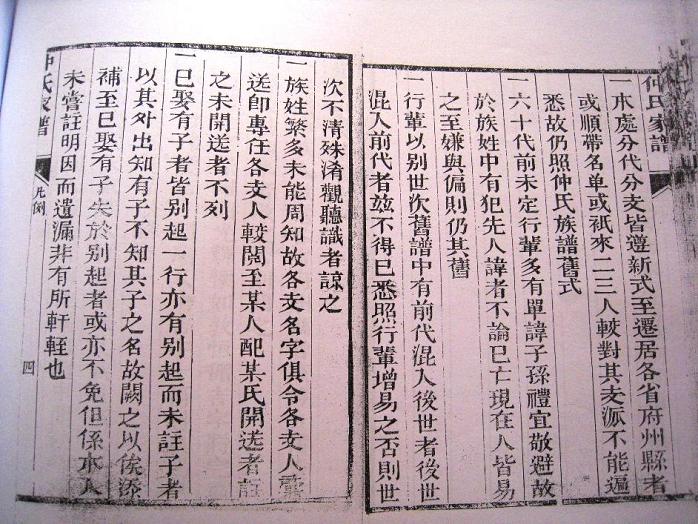 仲氏家譜
一本處分代分支皆遵新式至遷居各省府州縣者
或順帶名单或祇來二三人較對其支派不能遍
悉故仍照仲氏族譜舊式
一六十代前未定行輩多有單諱子孫禮宜敬避故
於族姓中有犯先人諱者不論已亡現在人皆易
之至嫌與偏則仍其舊
一行輩以別世次舊譜中有前代混入後世者後世
混入前代者兹不得已悉照行輩增易之否則世
次不清殊淆觀聽識者諒之
一族姓繁多未能周知故各支名字俱令各支人
送即專任各支人較閱至某人配某氏開送者註
之未開送者不列
一已娶有子者皆別起一行亦有別起而未註子者
以其外出知有子不知其子之名故闕之以俟添
補至已娶有子失於別起者或亦不免但係本人
未嘗註明因而遺漏非有所軒輊也
仲氏家譜
凡例
四